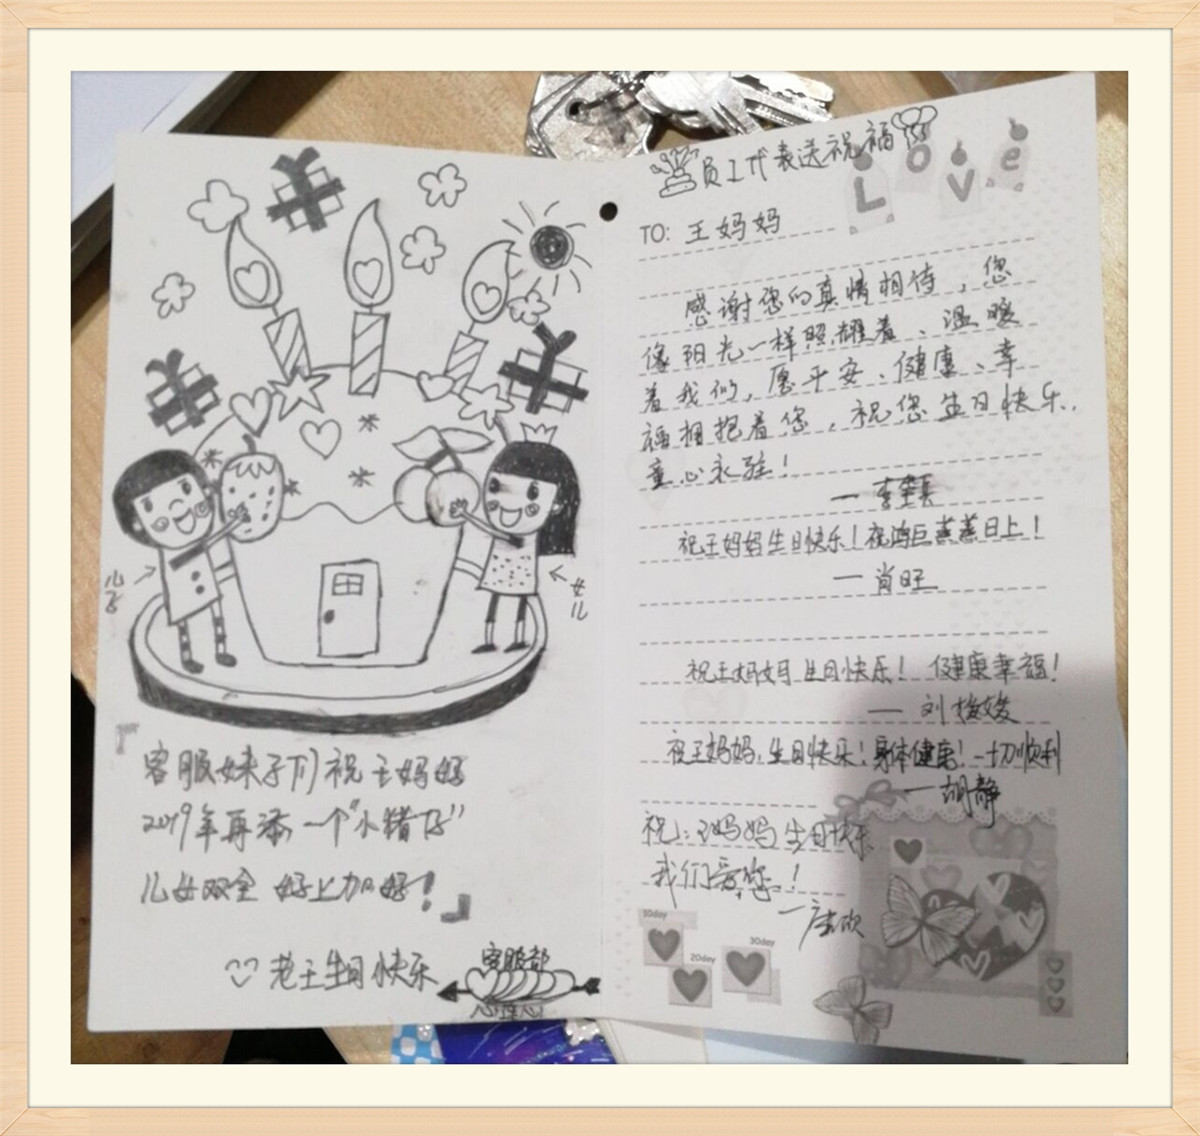 儿子
女儿
客服妹子们祝王妈妈
2019年再添一个“小猪仔”
儿女双全 好上加好！
老王生日快乐
客服部
心连心
员工代表送祝福
Love
TO: 王妈妈
感谢您的真情相待，您
像阳光一样照耀着、温暖
着我们，愿平安、健康、幸
福拥抱着您，祝您生日快乐，
童心永驻！
祝王妈妈生日快乐！祝鸿巨蒸蒸日上！
— 肖旺
祝王妈妈生日快乐！健康幸福！
— 刘
祝王妈妈，生日快乐！身体健康！一切顺利
— 胡静
祝：王妈妈生日快乐
我们爱您！
10day
20day
30day